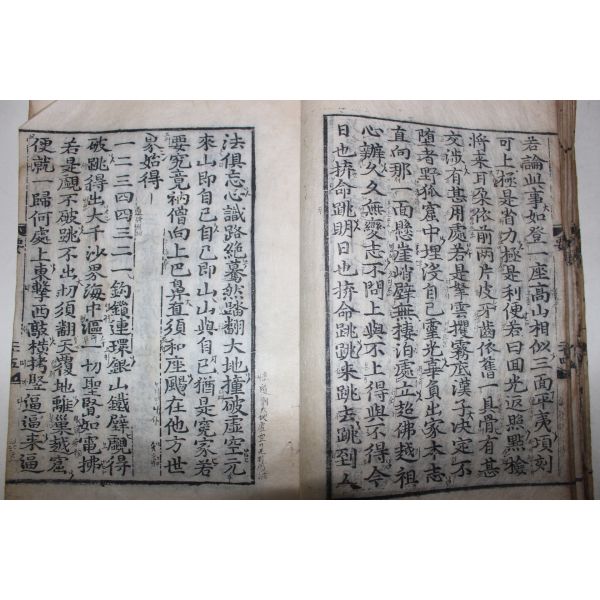 若論此事如登一座高山相似三面平夷項刻
可上極是省力極是利便若曰回光返照點檢
將來耳朶依前兩片皮牙齒依舊一具骨有甚
交涉有甚用處若是拏雲攫霧底漢子決定不
墮者野狐窟中埋沒自己靈光辜負出家本志
直向那一面懸崖峭壁無棲泊處立超佛越祖
心辦久久無變志不問上與不上得與不得今
日也拚命跳明日也拚命跳跳來跳去跳到人
法俱忘心識路絶驀然踏翻大地撞破虛空元
來山即自己自己即山山與自己猶是冤家若
要究竟衲僧向上巴鼻直須和座颺在他方世
界始得
一二三四四三二一鉤鎖連環銀山鐵壁覷得
破跳得出大千沙界海中漚一切聖賢如電拂
若是覷不破跳不出切須翻天覆地離巢越窟
便就一歸何處上東擊西敲橫拷竪逼逼來逼